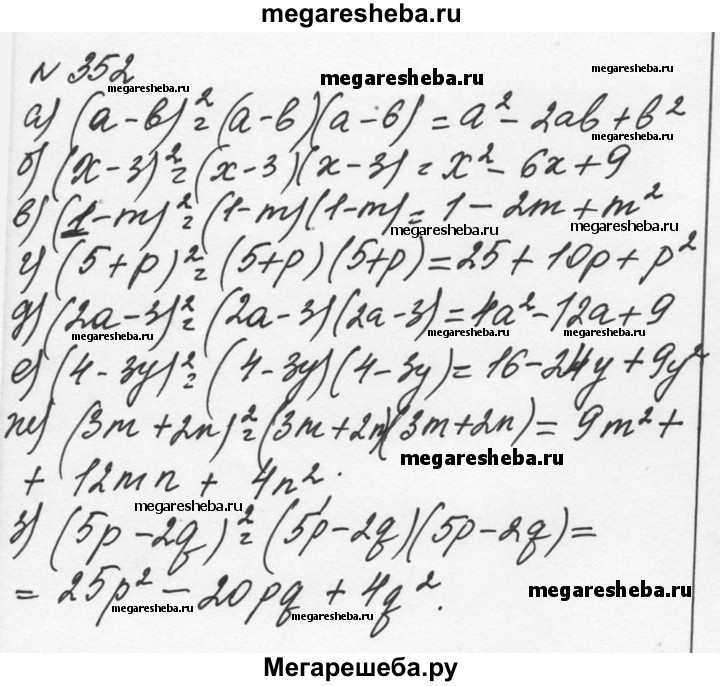 megaresheba.ru
№ 352
megaresheba.ru
megaresheba.ru
megaresheba.ru
а) (a-b)² = (a-b)(a-b) = a² - 2ab + b²
megaresheba.ru
б) (x-3)² = (x-3)(x-3) = x² - 6x + 9
в) (1-m)² = (1-m)(1-m) = 1 - 2m + m²
megaresheba.ru
megaresheba.ru
г) (5+p)² = (5+p)(5+p) = 25 + 10p + p²
д) (2a-3)² = (2a-3)(2a-3) = 4a² - 12a + 9
megaresheba.ru
megaresheba.ru
е) (4-3y)² = (4-3y)(4-3y) = 16 - 24y + 9y²
ж) (3m+2n)² = (3m+2n)(3m+2n) = 9m² +
megaresheba.ru
+ 12mn + 4n².
megaresheba.ru
з) (5p-2q)² = (5p-2q)(5p-2q) =
= 25p² - 20pq + 4q².
megaresheba.ru
megaresheba.ru
megaresheba.ru
Мегарешеба.ру